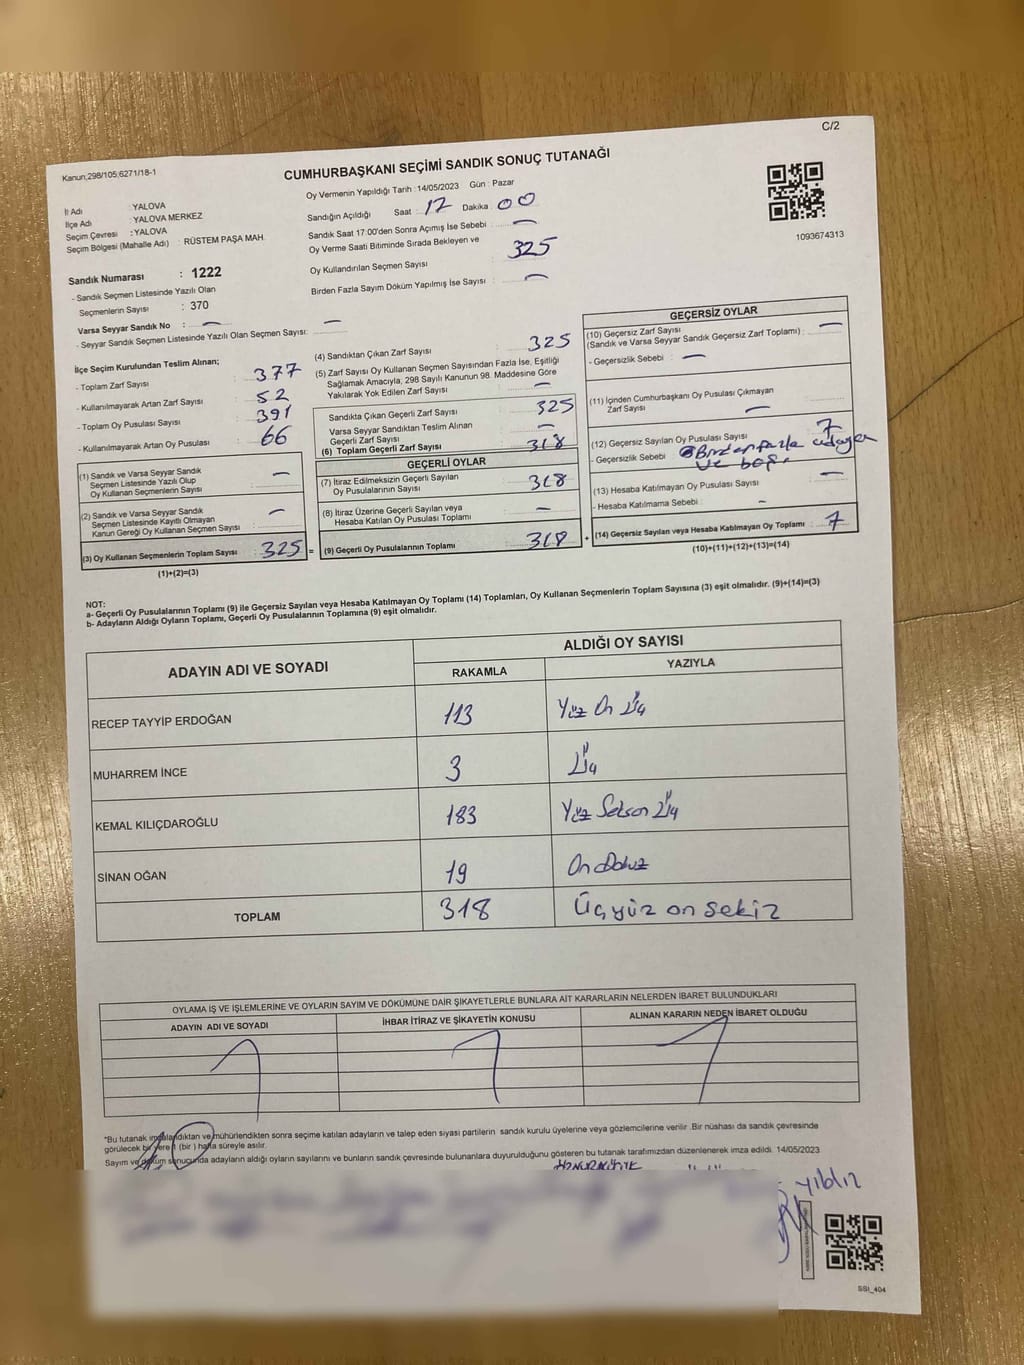 C/2
Kanun;298/105;6271/18-1
CUMHURBAŞKANI SEÇİMİ SANDIK SONUÇ TUTANAĞI
1093674313
İl Adı : YALOVA
İlçe Adı : YALOVA MERKEZ
Seçim Çevresi : YALOVA
Seçim Bölgesi (Mahalle Adı) : RÜSTEM PAŞA MAH.
Sandık Numarası : 1222
- Sandık Seçmen Listesinde Yazılı Olan
Seçmenlerin Sayısı : 370
Varsa Seyyar Sandık No : —
- Seyyar Sandık Seçmen Listesinde Yazılı Olan Seçmen Sayısı: —
Oy Vermenin Yapıldığı Tarih : 14/05/2023 Gün : Pazar
Sandığın Açıldığı Saat 17 Dakika 00
Sandık Saat 17.00'den Sonra Açımış İse Sebebi : —
Oy Verme Saati Bitiminde Sırada Bekleyen ve
Oy Kullandırılan Seçmen Sayısı : 325
Birden Fazla Sayım Döküm Yapılmış İse Sayısı : —
İlçe Seçim Kurulundan Teslim Alınan;
- Toplam Zarf Sayısı : 377
- Kullanılmayarak Artan Zarf Sayısı : 52
- Toplam Oy Pusulası Sayısı : 391
- Kullanılmayarak Artan Oy Pusulası : 66
(1) Sandık ve Varsa Seyyar Sandık
Seçmen Listesinde Yazılı Olup
Oy Kullanan Seçmenlerin Sayısı : —
(2) Sandık ve Varsa Seyyar Sandık
Seçmen Listesinde Kayıtlı Olmayan
Kanun Gereği Oy Kullanan Seçmen Sayısı : —
(3) Oy Kullanan Seçmenlerin Toplam Sayısı : 325 =
(1)+(2)=(3)
(4) Sandıktan Çıkan Zarf Sayısı : 325
(5) Zarf Sayısı Oy Kullanan Seçmen Sayısından Fazla İse, Eşitliği
Sağlamak Amacıyla, 298 Sayılı Kanunun 98. Maddesine Göre
Yakılarak Yok Edilen Zarf Sayısı : —
Sandıkta Çıkan Geçerli Zarf Sayısı : 325
Varsa Seyyar Sandıktan Teslim Alınan
Geçerli Zarf Sayısı : —
(6) Toplam Geçerli Zarf Sayısı : 318
GEÇERLİ OYLAR
(7) İtiraz Edilmeksizin Geçerli Sayılan
Oy Pusulalarının Sayısı : 318
(8) İtiraz Üzerine Geçerli Sayılan veya
Hesaba Katılan Oy Pusulası Toplamı : —
(9) Geçerli Oy Pusulalarının Toplamı : 318 +
GEÇERSİZ OYLAR
(10) Geçersiz Zarf Sayısı
(Sandık ve Varsa Seyyar Sandık Geçersiz Zarf Toplamı) : —
- Geçersizlik Sebebi : —
(11) İçinden Cumhurbaşkanı Oy Pusulası Çıkmayan
Zarf Sayısı : —
(12) Geçersiz Sayılan Oy Pusulası Sayısı : 7
- Geçersizlik Sebebi : Birden fazla adaya
ve boş.
(13) Hesaba Katılmayan Oy Pusulası Sayısı : —
- Hesaba Katılmama Sebebi : —
(14) Geçersiz Sayılan veya Hesaba Katılmayan Oy Toplamı : 7
(10)+(11)+(12)+(13)=(14)
NOT:
a- Geçerli Oy Pusulalarının Toplamı (9) ile Geçersiz Sayılan veya Hesaba Katılmayan Oy Toplamı (14) Toplamları, Oy Kullanan Seçmenlerin Toplam Sayısına (3) eşit olmalıdır. (9)+(14)=(3)
b- Adayların Aldığı Oyların Toplamı, Geçerli Oy Pusulalarının Toplamına (9) eşit olmalıdır.
ADAYIN ADI VE SOYADI ALDIĞI OY SAYISI
RAKAMLA YAZIYLA
RECEP TAYYİP ERDOĞAN 113 Yüz On Üç
MUHARREM İNCE 3 Üç
KEMAL KILIÇDAROĞLU 183 Yüz Seksen Üç
SİNAN OĞAN 19 On Dokuz
TOPLAM 318 Üçyüz on sekiz
OYLAMA İŞ VE İŞLEMLERİNE VE OYLARIN SAYIM VE DÖKÜMÜNE DAİR ŞİKAYETLERLE BUNLARA AİT KARARLARIN NELERDEN İBARET BULUNDUKLARI
ADAYIN ADI VE SOYADI İHBAR İTİRAZ VE ŞİKAYETİN KONUSU ALINAN KARARIN NEDEN İBARET OLDUĞU
*Bu tutanak imzalandıktan ve mühürlendikten sonra seçime katılan adayların ve talep eden siyasi partilerin sandık kurulu üyelerine veya gözlemcilerine verilir .Bir nüshası da sandık çevresinde
görülecek bir yere 1 (bir ) hafta süreyle asılır.
Sayım ve döküm sonucunda adayların aldığı oyların sayılarını ve bunların sandık çevresinde bulunanlara duyurulduğunu gösteren bu tutanak tarafımızdan düzenlenerek imza edildi. 14/05/2023
yıldız
SSI_404